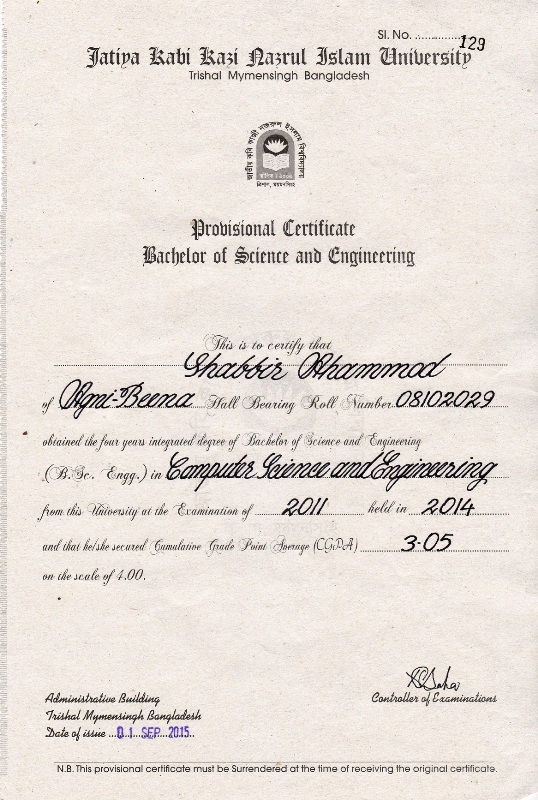 Sl. No. ................129
Jatiya Kabi Kazi Nazrul Islam University
Trishal Mymensingh Bangladesh
জাতীয় কবি কাজী নজরুল ইসলাম বিশ্ববিদ্যালয়
ত্রিশাল, ময়মনসিংহ
Provisional Certificate
Bachelor of Science and Engineering
This is to certify that
Shabbir Ahammod
of Agni-Beena Hall Bearing Roll Number 08102029
obtained the four years integrated degree of Bachelor of Science and Engineering
(B.Sc. Engg.) in Computer Science and Engineering
from this University at the Examination of 2011 held in 2014
and that he/she secured Cumulative Grade Point Average (CGPA) 3.05
on the scale of 4.00.
Controller of Examinations
Administrative Building
Trishal Mymensingh Bangladesh
Date of issue ...01 SEP 2015..
N.B. This provisional certificate must be Surrendered at the time of receiving the original certificate.